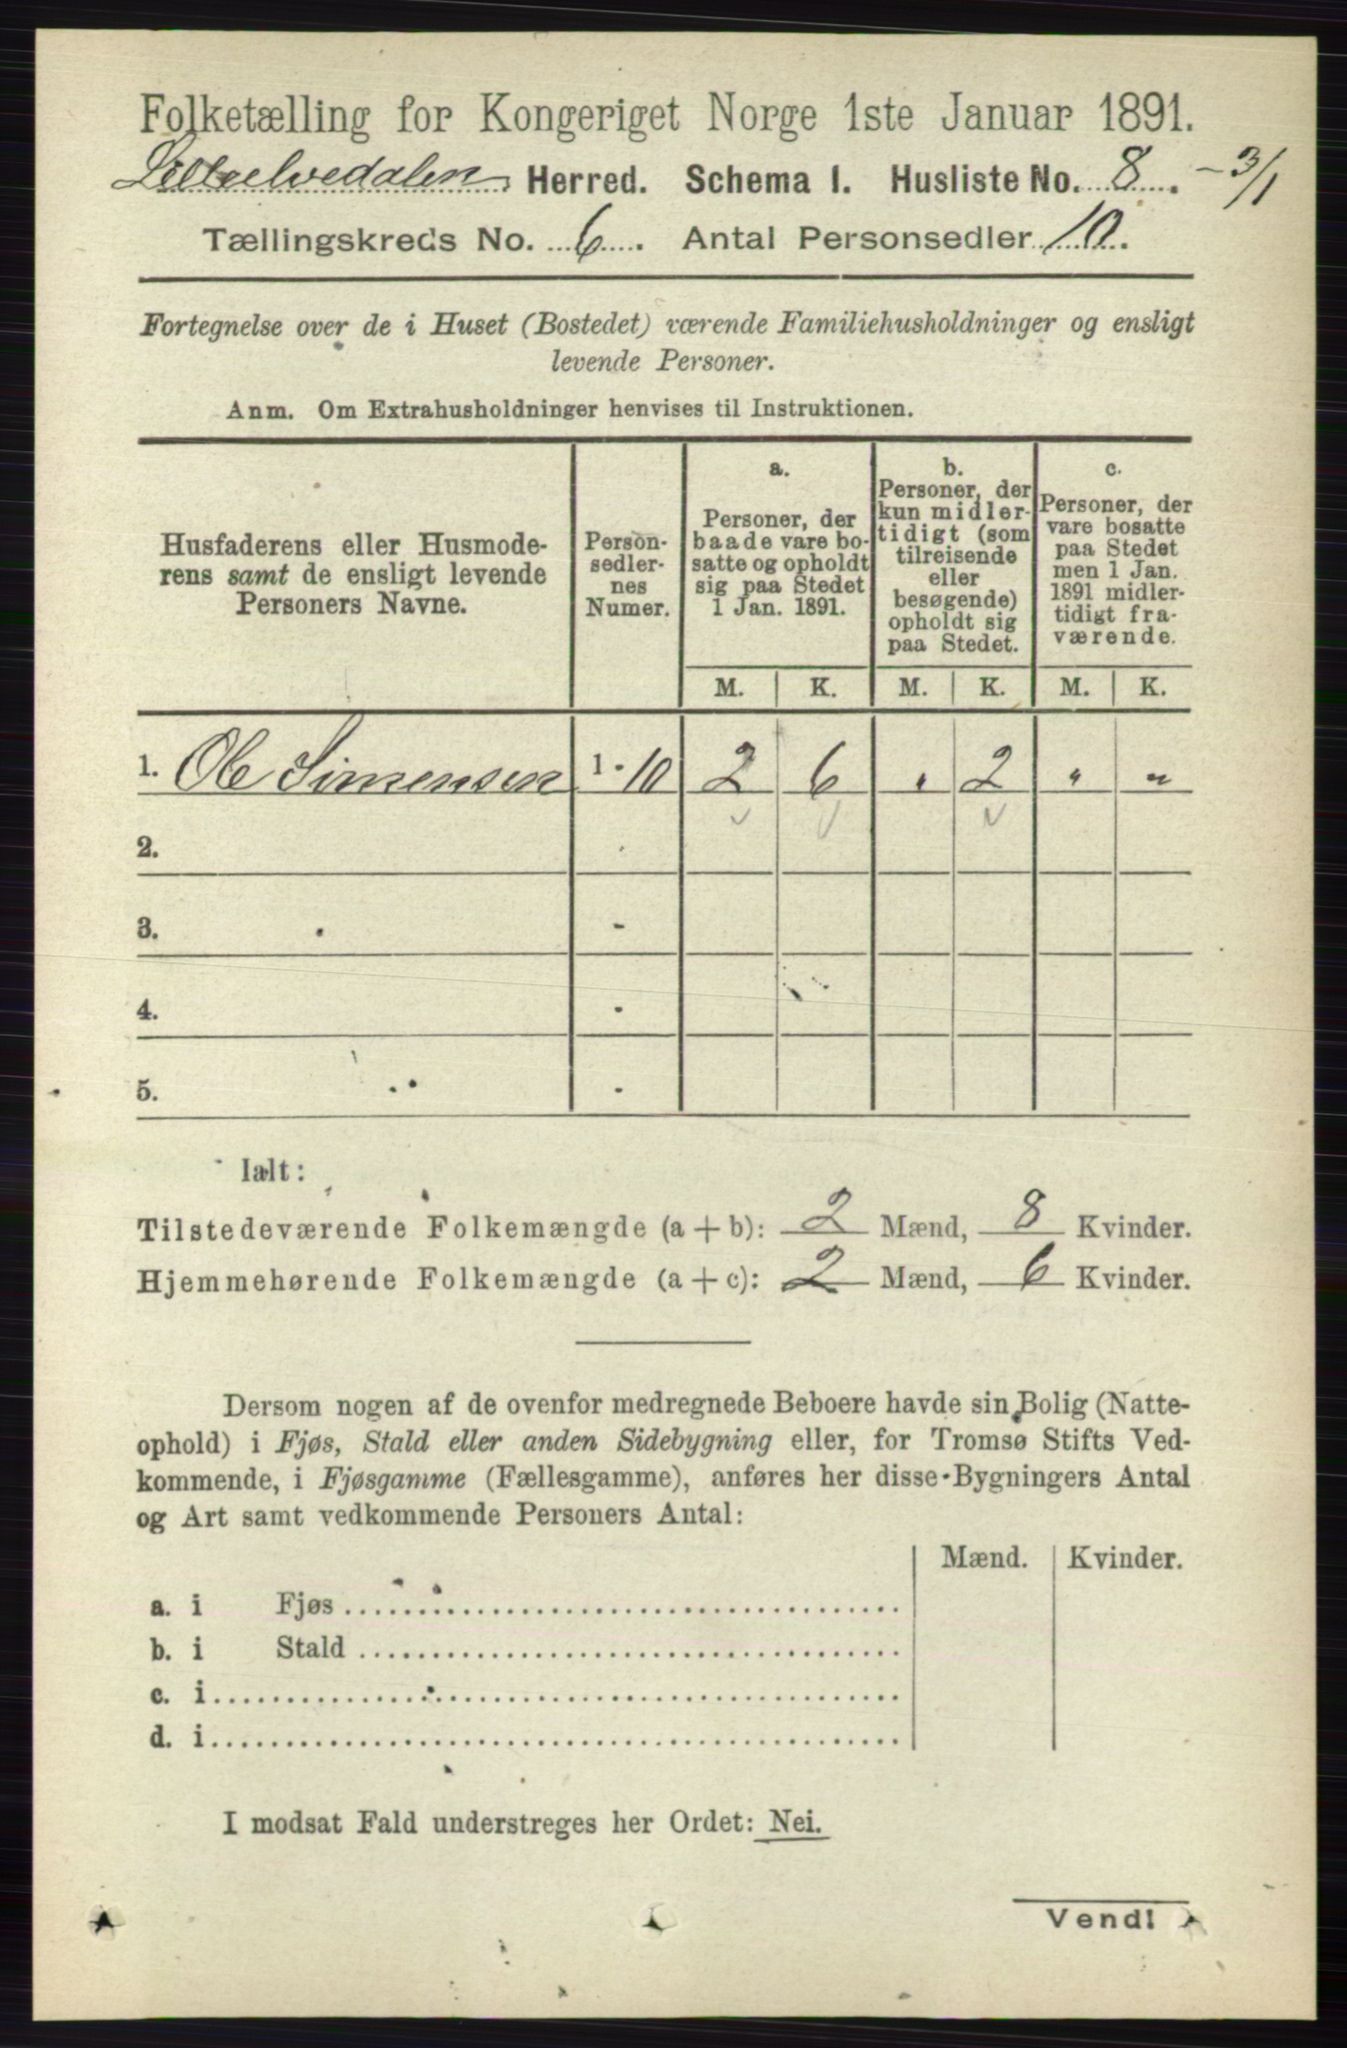 Folketælling for Kongeriget Norge 1ste Januar 1891.
Lilleelvedalen Herred. Schema I. Husliste No. 8. - 3/1
Tællingskreds No. 6. Antal Personsedler 10.
Fortegnelse over de i Huset (Bostedet) værende Familiehusholdninger og ensligt
levende Personer.
Anm. Om Extrahusholdninger henvises til Instruktionen.
Husfaderens eller Husmode-
rens samt de ensligt levende
Personers Navne.
Person-
sedler-
nes
Numer.
a.
Personer, der
baade vare bo-
satte og opholdt
sig paa Stedet
1 Jan. 1891.
b.
Personer, der
kun midler-
tidigt (som
tilreisende
eller
besøgende)
opholdt sig
paa Stedet.
c.
Personer, der
vare bosatte
paa Stedet
men 1 Jan.
1891 midler-
tidigt fra-
værende.
M. K. M. K. M. K.
1. Ole Simensen 1 - 10 2 6 " 2 " "
2.
3. -
4. -
5. -
Ialt:
Tilstedeværende Folkemængde (a + b): 2 Mænd, 8 Kvinder.
Hjemmehørende Folkemængde (a + c): 2 Mænd, 6 Kvinder.
Dersom nogen af de ovenfor medregnede Beboere havde sin Bolig (Natte-
ophold) i Fjøs, Stald eller anden Sidebygning eller, for Tromsø Stifts Ved-
kommende, i Fjøsgamme (Fællesgamme), anføres her disse Bygningers Antal
og Art samt vedkommende Personers Antal:
Mænd. Kvinder.
a. i Fjøs
b. i Stald
c. i
d. i
I modsat Fald understreges her Ordet: Nei.
Vend!